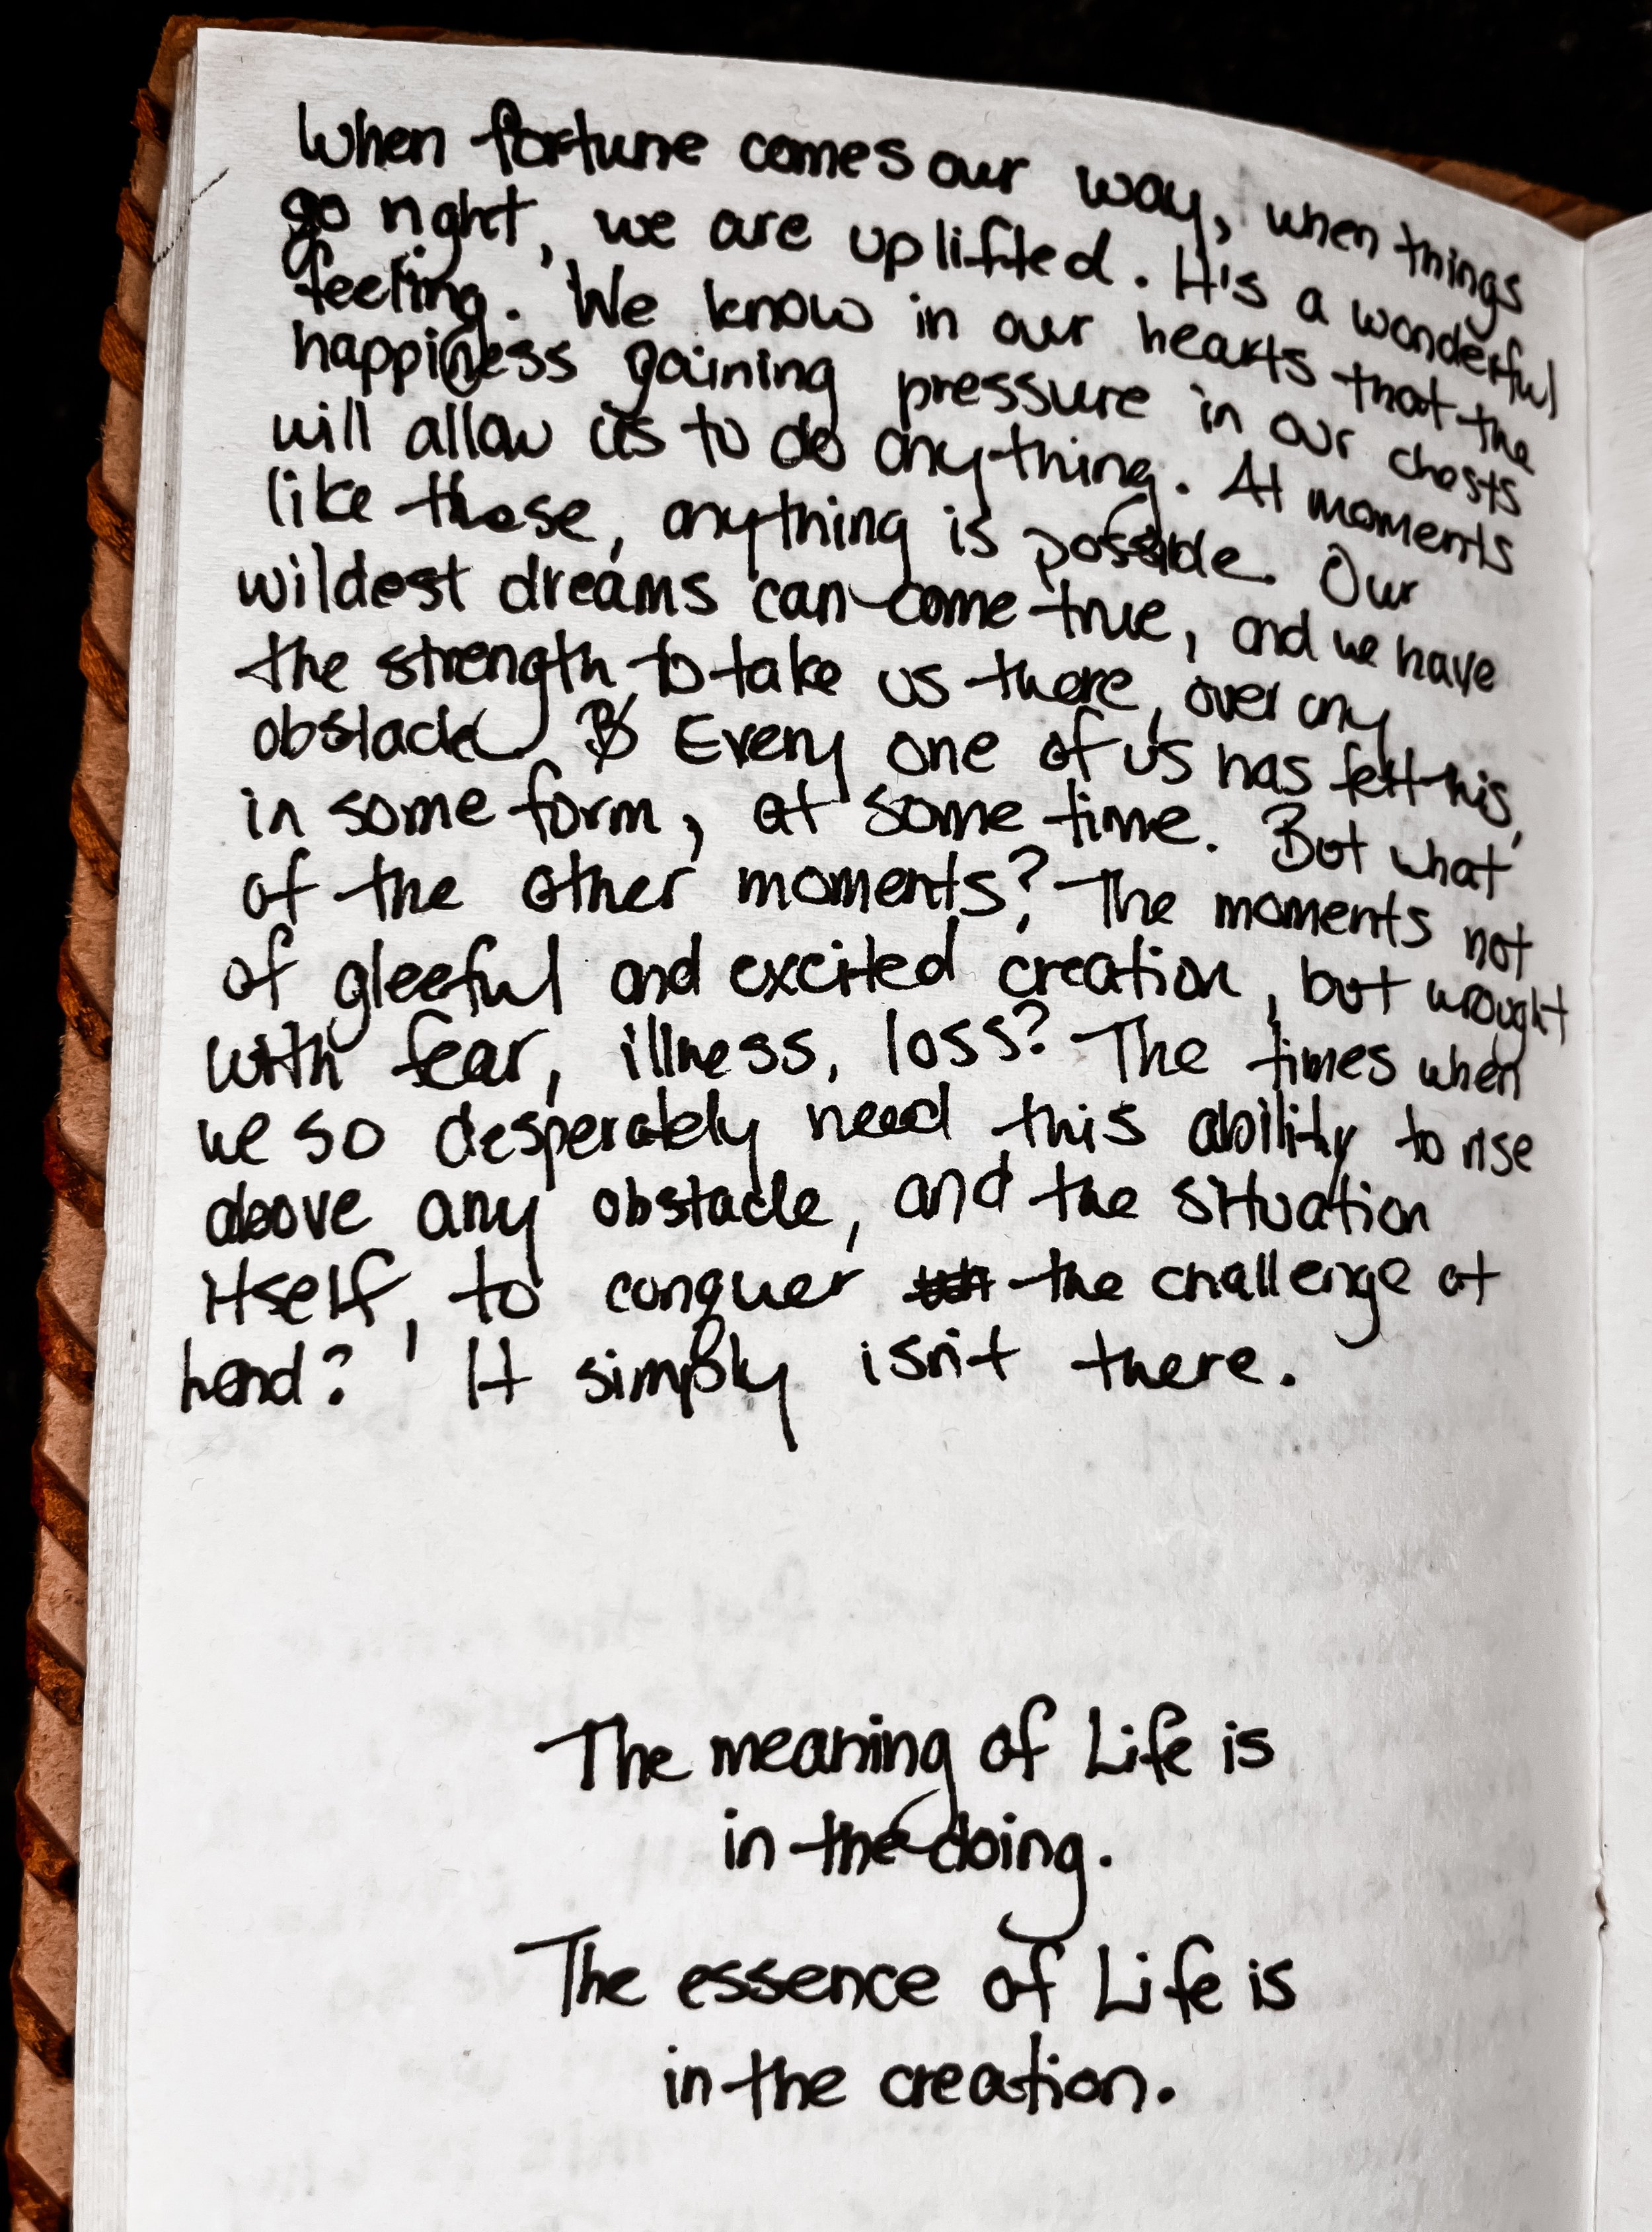 When fortune comes our way, when things
go right, we are uplifted. It's a wonderful
feeling. We know in our hearts that the
happiness gaining pressure in our chests
will allow us to do anything. At moments
like those, anything is possible. Our
wildest dreams can come true, and we have
the strength to take us there, over any
obstacle. Every one of us has felt this,
in some form, at some time. But what
of the other moments? The moments not
of gleeful and excited creation, but wrought
with fear, illness, loss? The times when
we so desperately need this ability to rise
above any obstacle, and the situation
itself, to conquer the challenge at
hand? It simply isn't there.
The meaning of Life is
in the doing.
The essence of Life is
in the creation.